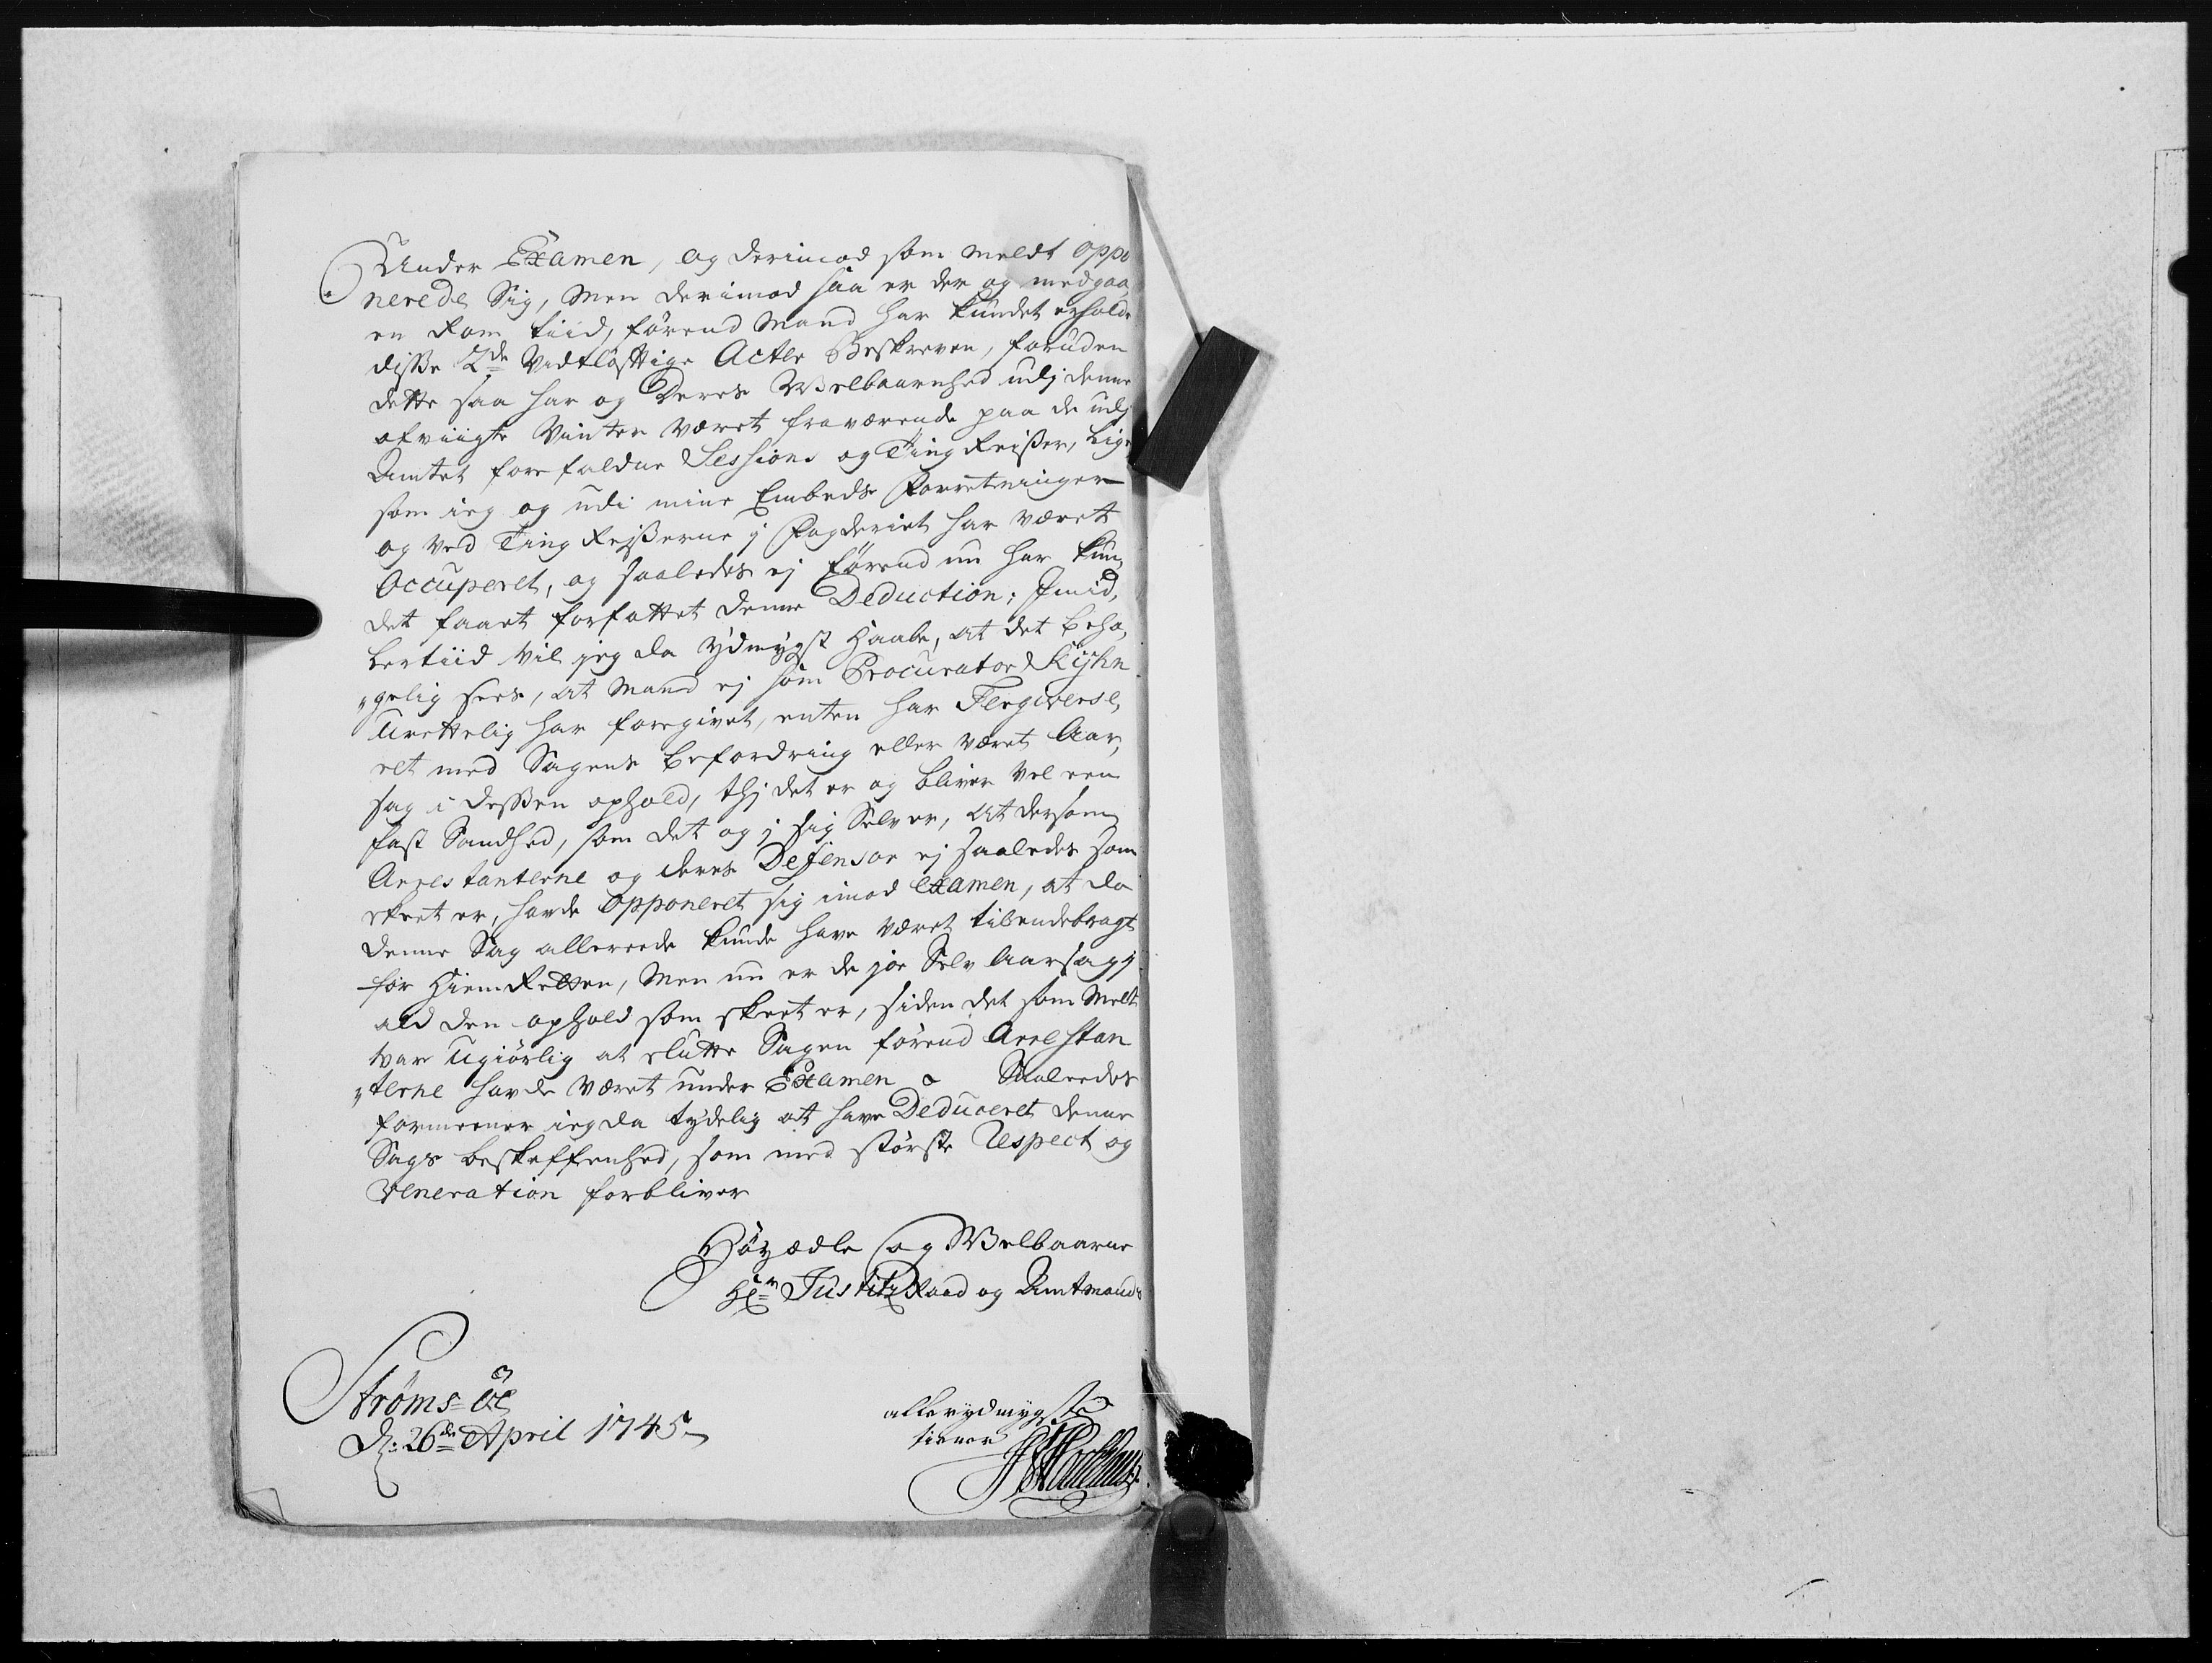 Under Examen, og derimod som meldt oppo
nerede Sig, Men derimod saa er der og medgaa,
en Rom tiid, førend Mand har kundet erholde
disse 2de Vidtløfttige Acter Beskreven, foruden
dette saa har og Deres Welbaarnhed udj denne
afviigte Vinter Været fraværende paa de udj
Amtet forefaldne Sessions og Ting Reiser, lige
som ieg og udi mine Embeds Forretninger
og ved Ting Reiserne j Fogderiet har Været
Occuperet, og saaledes ej førend nu har kun,
det faaet forfattet denne Deduction; Imid,
lertiid Vil jeg da ydmygst Haabe, at det beha,
"gelig sees, at Mand ej som Procurator Kyhn
Urettelig har foregivet, enten har Tergiverse,
ret med Sagens Befordring eller Været Aar,
sag i dessen ophold, thj det er og bliver Vel een
fast Sandhed, som det og j sig Selv er, at dersom
Arrestanterne og deres Defensor ej saaledes som
skeet er, hafde Opponeret sig imod examen, at da
denne Sag allereede kunde have Været tilendebragt
for Hiem Retten, Men nu er de joe Selv Aarsag j
ald den ophold som skeet er, siden det som Melt
Var Ugiørlig at slutte Sagen førend Arrestan
"terne hafde Været under Examen Saaleedes
formeener ieg da tydelig at have Deduceret denne
Sags beskaffenhed, som med største Respect og
Veneration forbliver
Høyædle og Welbaarne
Hr Justitz Raad og Amtmands
Strøms-Øe
d: 26de April 1745
allerydmygste
tiener